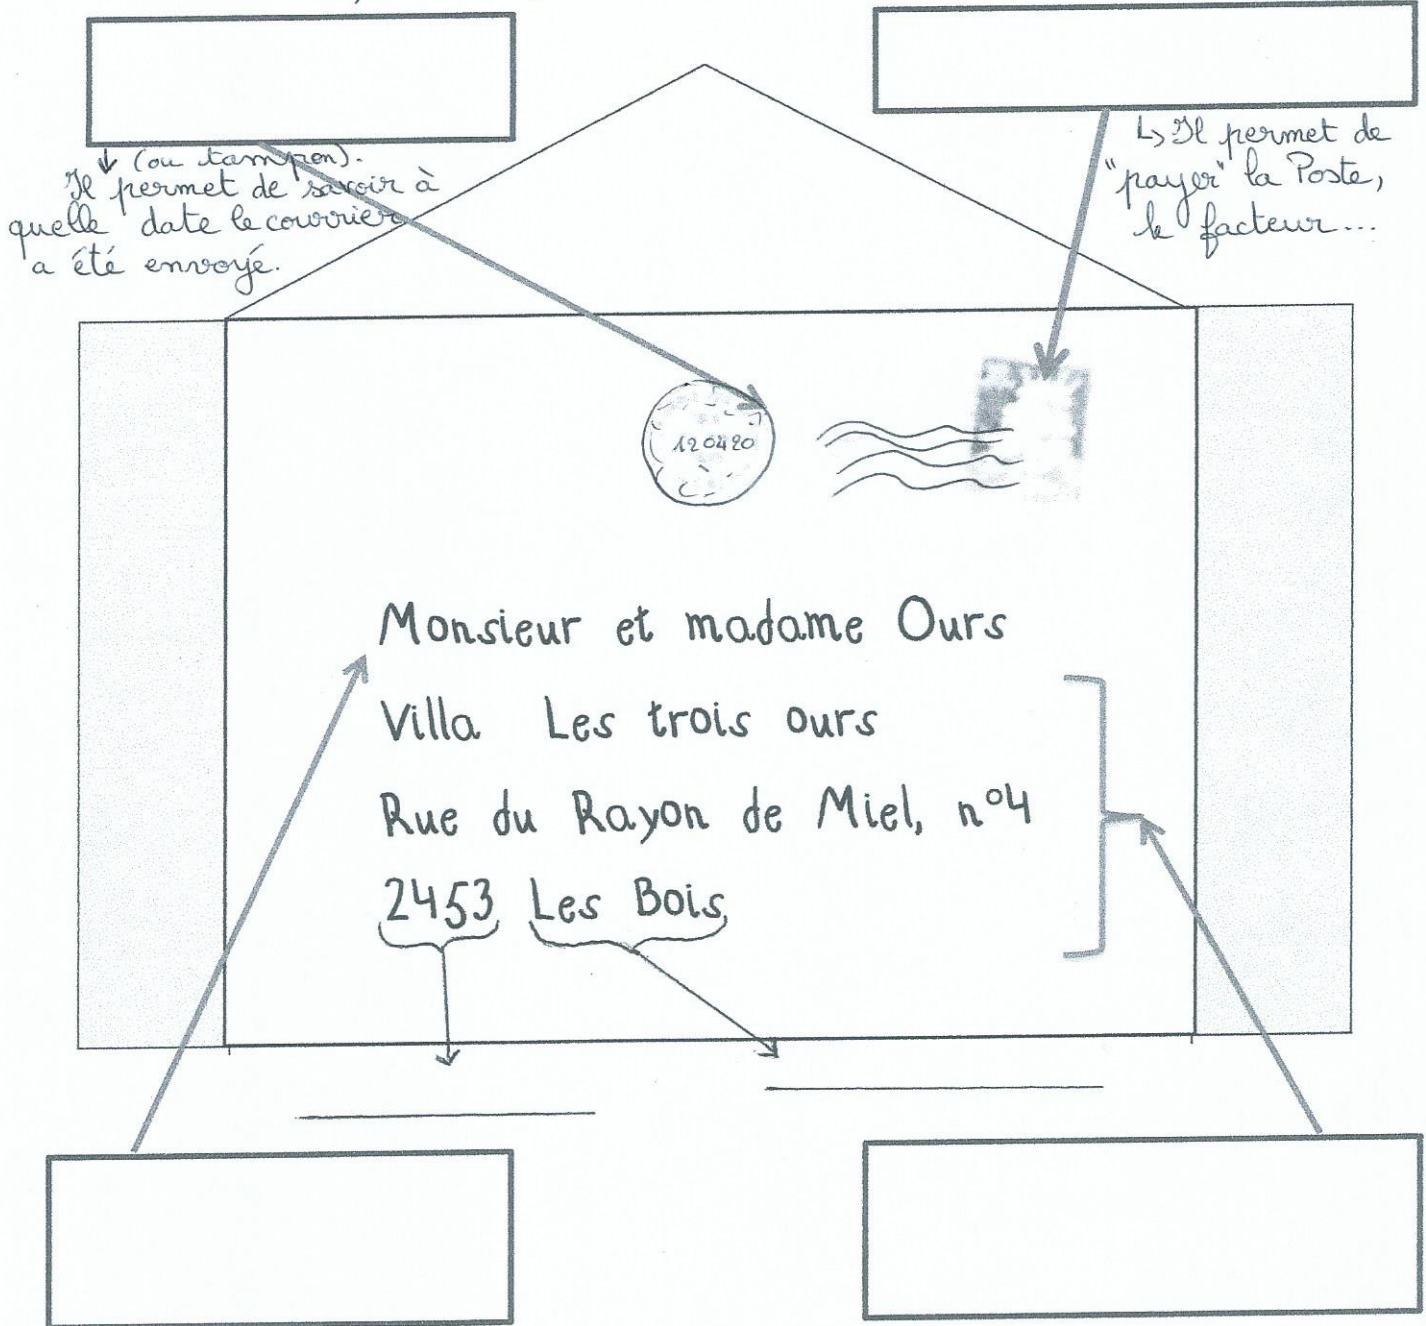 ↓ (ou tampon).
Il permet de savoir à
quelle date le courrier
a été envoyé.
↳ Il permet de
"payer" la Poste,
le facteur...
120420
Monsieur et madame Ours
Villa Les trois ours
Rue du Rayon de Miel, n°4
2453 Les Bois